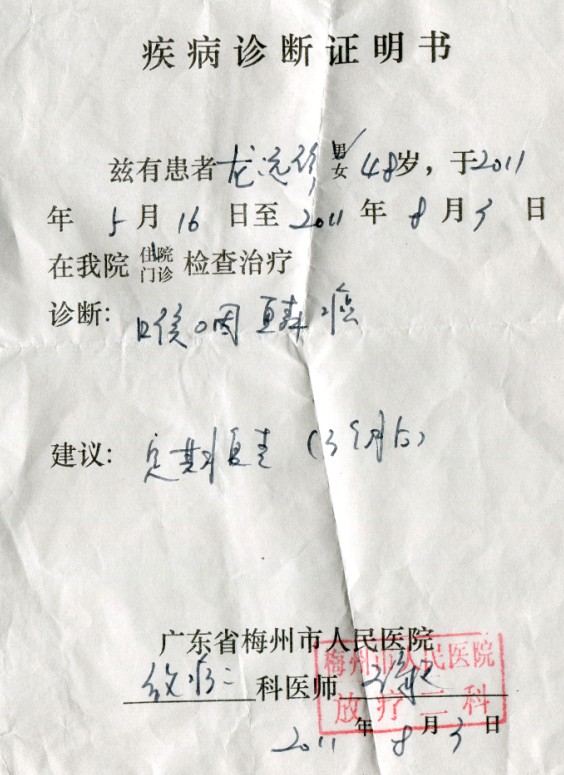 疾病诊断证明书
兹有患者龙 男女 48岁，于2011
年 5 月 16 日至 2011 年 8 月 3 日
在我院 住院门诊 检查治疗
诊断: 喉咽 癌
建议: 定期复查 (3个月后)
广东省梅州市人民医院
放疗二 科医师
梅州市人民医院
放疗二科
2011 年 8 月 3 日